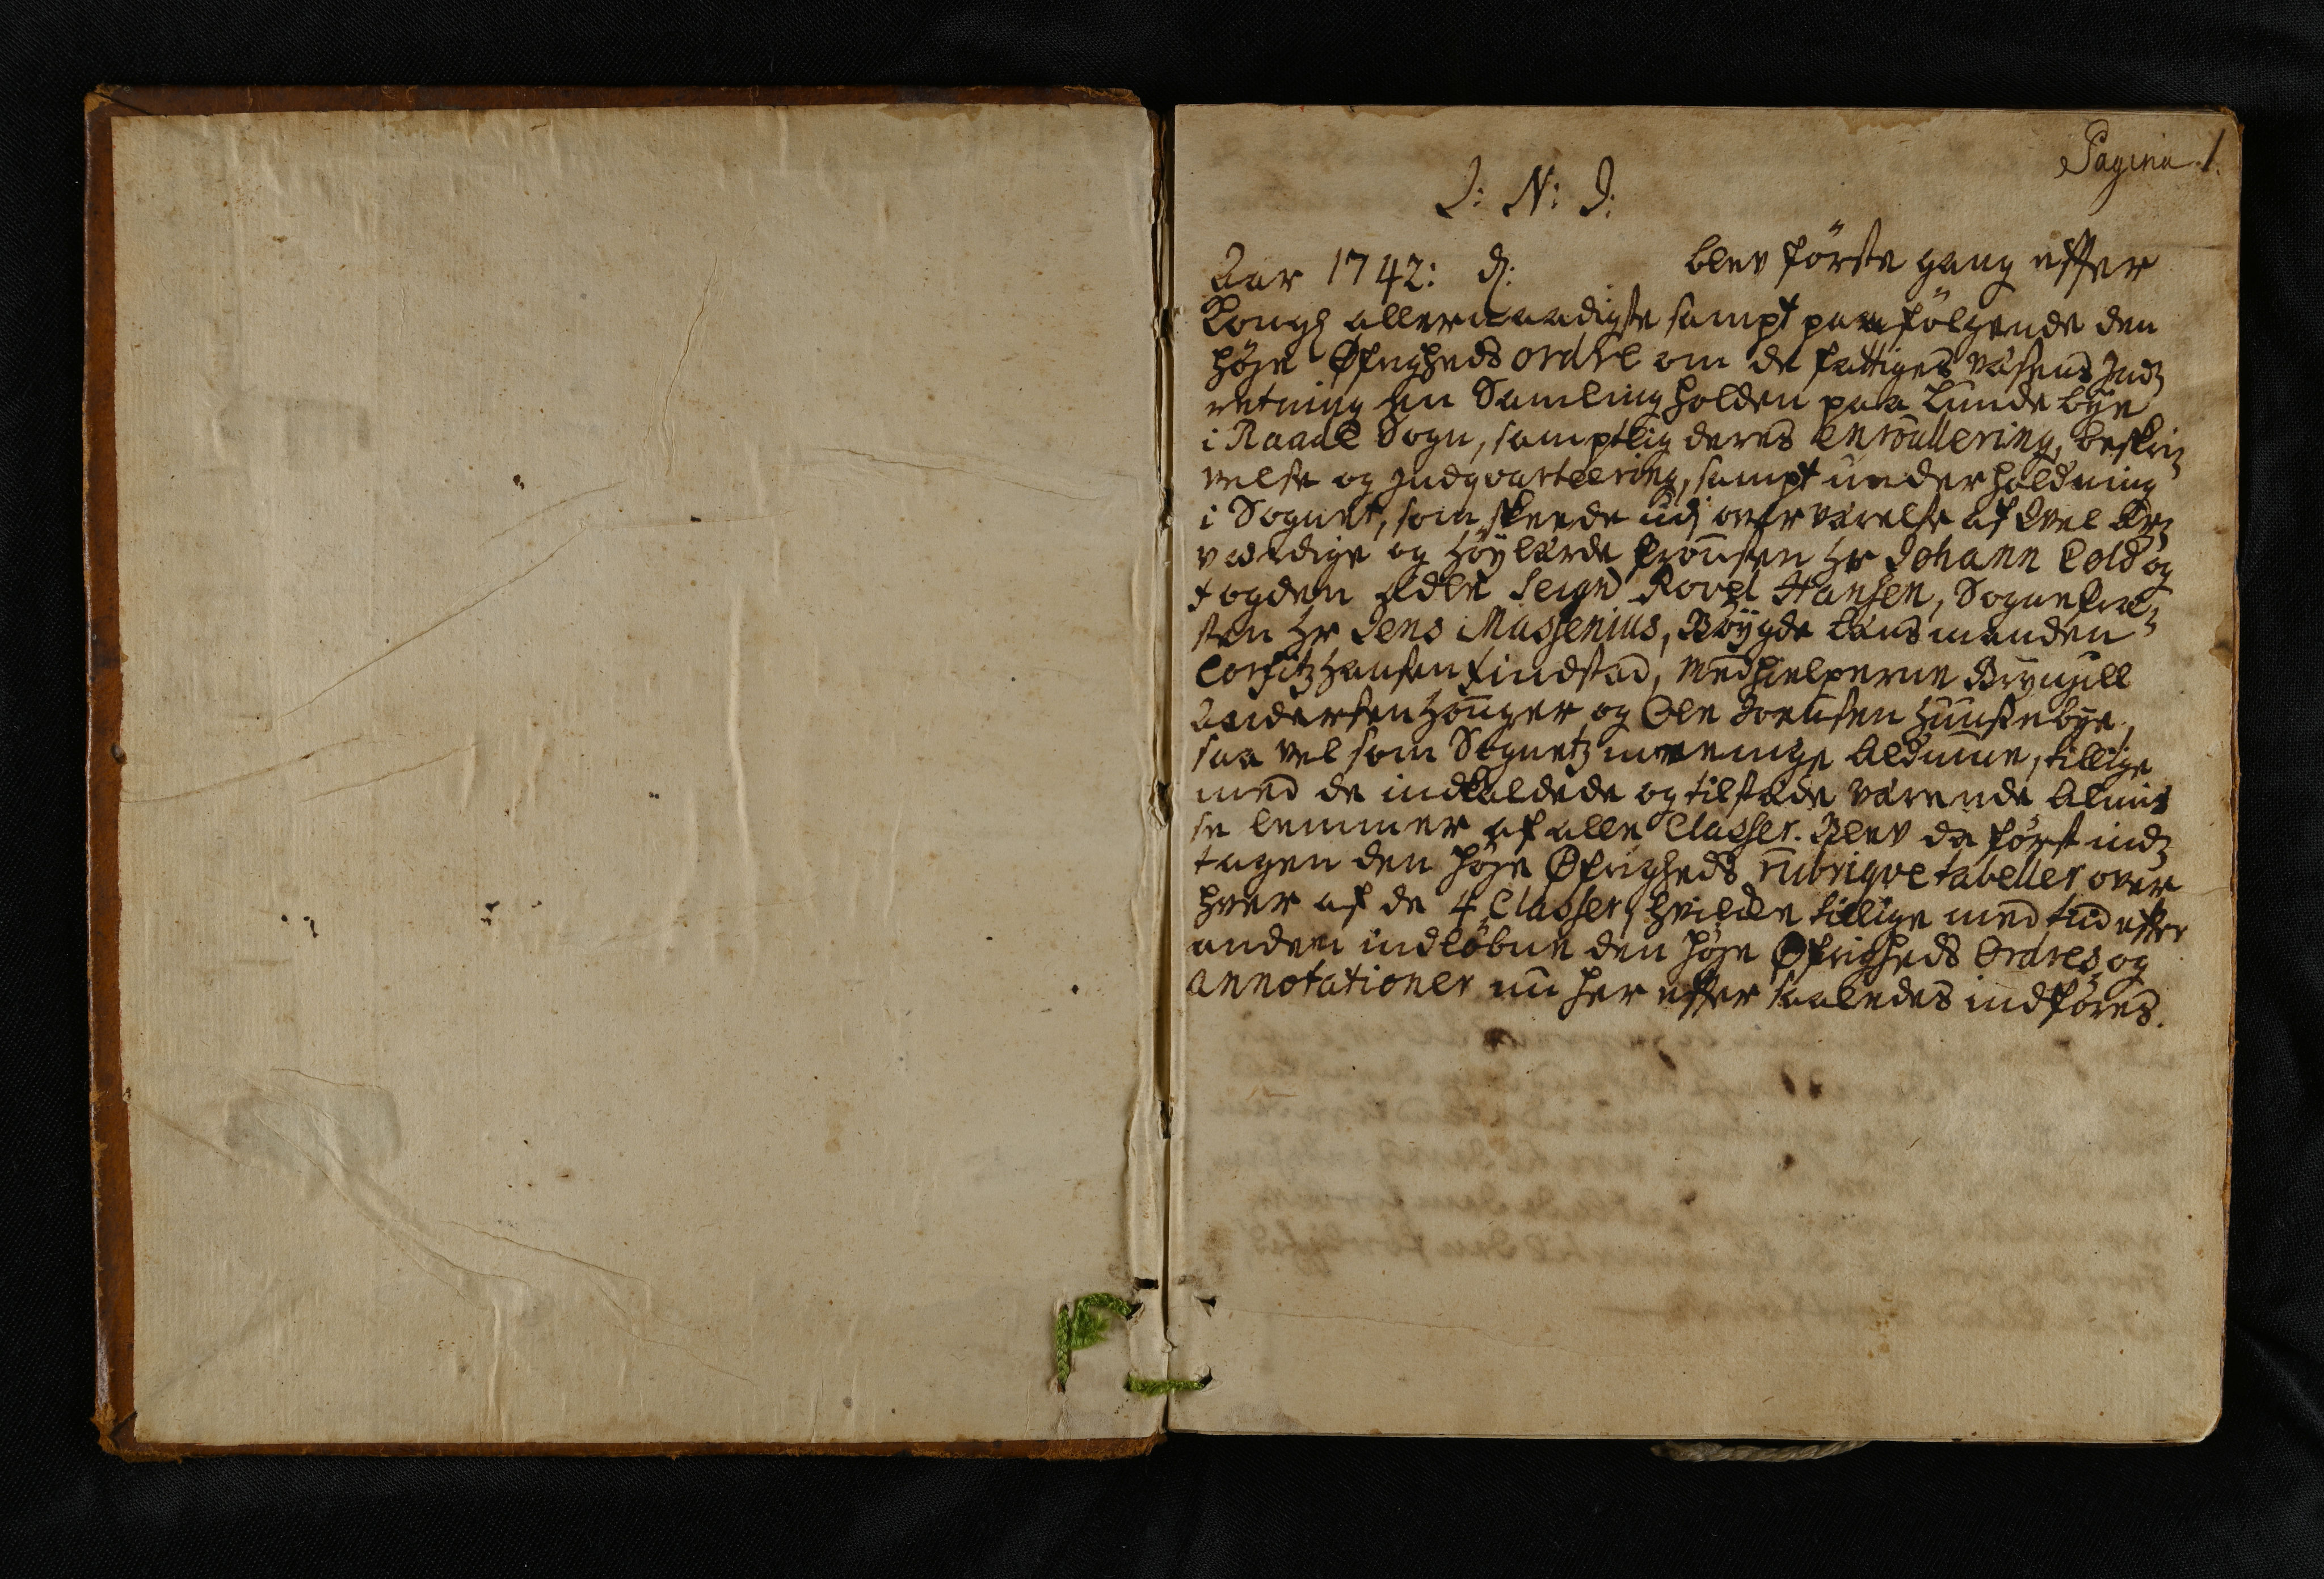 Pagina 1.
I: N: J:
Aar 1742: d: blev förste gang efter
Kongl allernaadigste sampt paafølgende den
höje Øfrigheds ordre om de fattiges väsens Ind=
retning en Samling holden paa Lunde bye
i Raade Sogn, samptlig deres enroullering, beskri=
velse og Indqvarteering, sampt underholdning
i Sognet, som skeede udj overvärelse af Vel Er=
værdige og Höylärde Provsten Hr Johann Cold og
fogden Ædle Seigr Hansen, Sognepræ=
sten Hr Jens Massenius, Böygde Länsmanden
Corfitz Hansen Findstad, Medhielperne Brynjull
Andersen Houger og Ole Joensen Huusebye,
saa vel som Sognetz meenige Almue, tillige
med de indkaldede og tilstæde värende Almis
se lemmer af alle Classer. Blev da först ind=
tagen den höje Øfrigheds rubriqve tabeller over
hver af de 4 Classer, hvilcke tillige med tid efter
anden indlöbne den höje Øfrigheds Ordres og
annotationer nu her efter saaledes indföres.